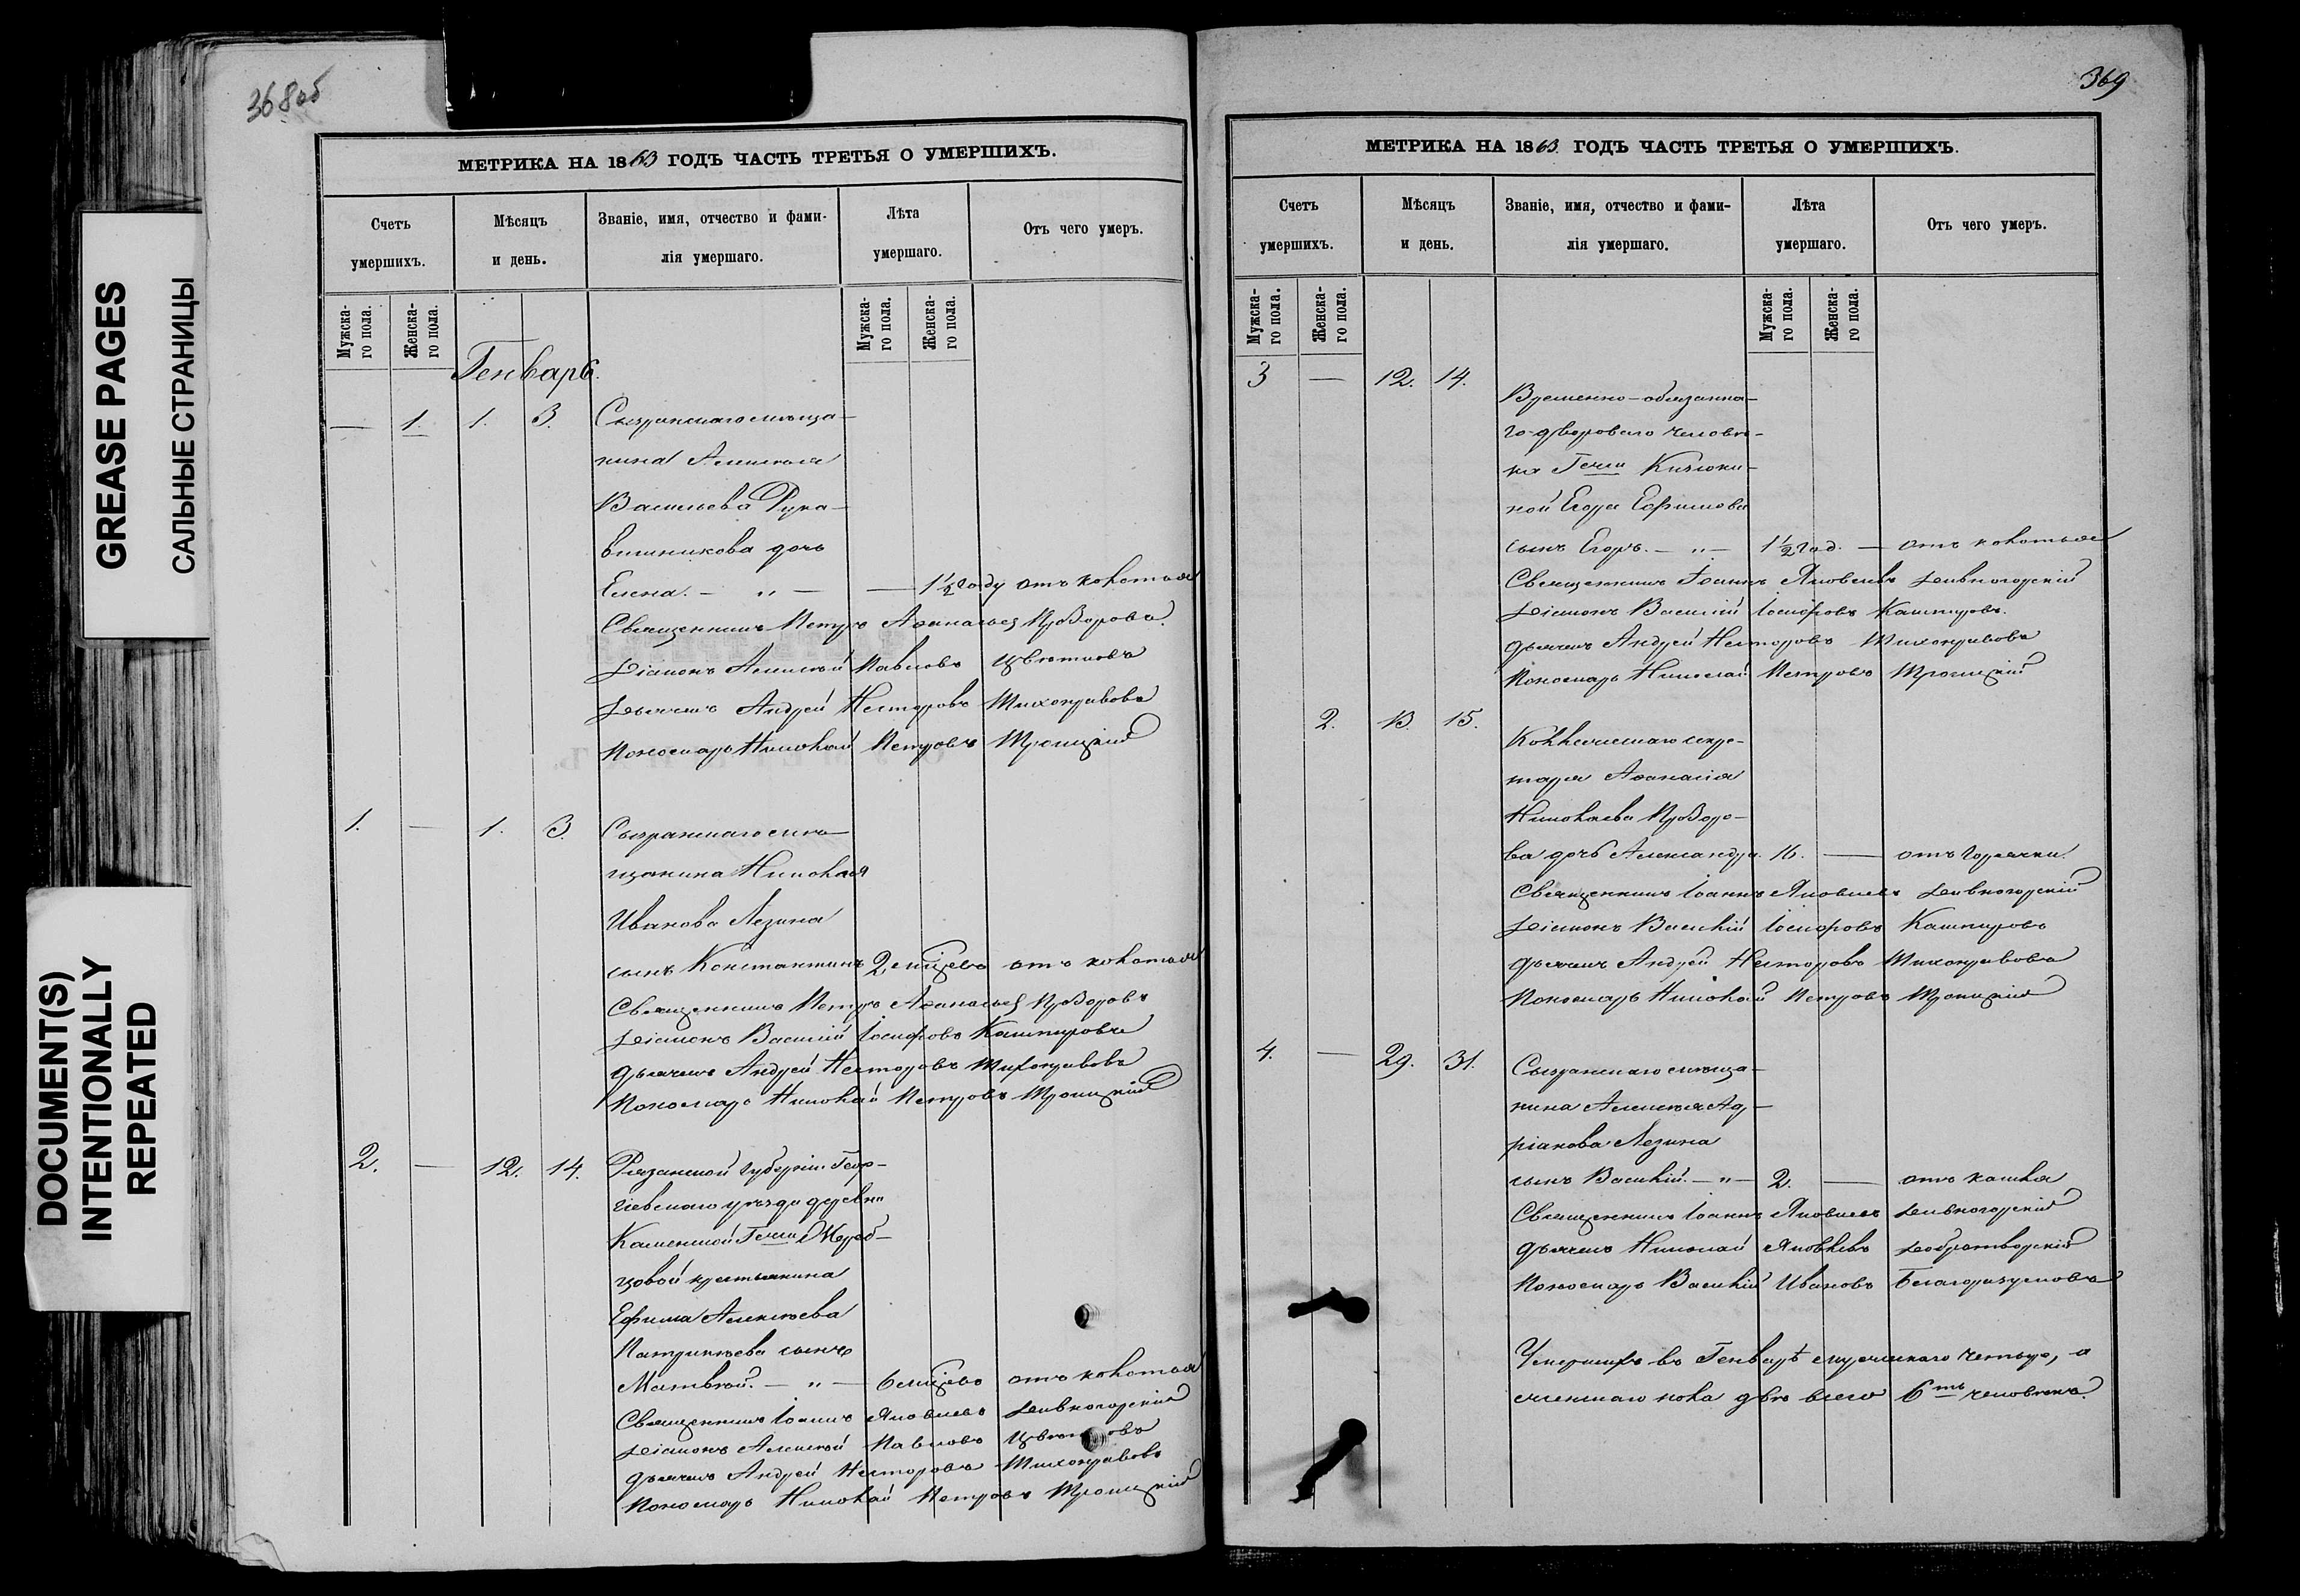 GREASE PAGES
САЛЬНЫЕ СТРАНИЦЫ
DOCUMENT(S)
INTENTIONALLY
REPEATED
368об
МЕТРИКА НА 1863 ГОДЪ ЧАСТЬ ТРЕТЬЯ О УМЕРШИХЪ.
Счетъ умершихъ.
Мѣсяцъ и день.
Званіе, имя, отчество и фами-
лія умершаго.
Лѣта умершаго.
Отъ чего умеръ.
Мужска-
го пола.
Женска-
го пола.
Мужска-
го пола.
Женска-
го пола.
Генварь.
— 1. 1. 3. Сызранскаго мѣща-
нина Алексѣя
Васильева Рука-
вишникова дочь
Елена. — „ — — 1½ году отъ колотья
Священникъ Петръ Аѳанасьевъ Прозоровъ.
Діаконъ Алексѣй Павловъ Цвѣтковъ
Дьячекъ Андрей Несторовъ Тихонравовъ
Пономарь Николай Петровъ Троицкій
1. — 1. 3. Сызранскаго мѣ-
щанина Николая
Иванова Лезина
сынъ Константинъ 2 мѣсяцевъ отъ колотья
Священникъ Петръ Аѳанасьевъ Прозоровъ
Діаконъ Василій Іосифовъ Кашпировъ
Дьячекъ Андрей Несторовъ Тихонравовъ
Пономарь Николай Петровъ Троицкій
2. — 12. 14. Рязанской губерніи Геор-
гіевскаго уѣзда деревни
Каменкой Гжи
цовой крестьянина
Ефима Алексѣева
Патрикѣева сынъ
Матвѣй. — „ — 6 мѣсяцевъ отъ колотья
Священникъ Іоаннъ Яковлевъ Дивногорскій
Діаконъ Алексѣй Павловъ Цвѣтковъ
Дьячекъ Андрей Несторовъ Тихонравовъ
Пономарь Николай Петровъ Троицкій
369
МЕТРИКА НА 1863 ГОДЪ ЧАСТЬ ТРЕТЬЯ О УМЕРШИХЪ.
Счетъ умершихъ.
Мѣсяцъ и день.
Званіе, имя, отчество и фами-
лія умершаго.
Лѣта умершаго.
Отъ чего умеръ.
Мужска-
го пола.
Женска-
го пола.
Мужска-
го пола.
Женска-
го пола.
3 — 12. 14.
Временно-обязанна-
го дворового человѣ-
ка Гжи
ной Егора Ефимова
сынъ Егоръ. — „ — 1½ год. — отъ колотья
Священникъ Іоаннъ Яковлевъ Дивногорскій
Діаконъ Василій Іосифовъ Кашпировъ.
Дьячекъ Андрей Несторовъ Тихонравовъ
Пономарь Николай Петровъ Троицкій
2. 13. 15.
Коллежскаго секре-
таря Аѳанасія
Николаева Прозоро-
ва дочь Александра. 16. — отъ горячки.
Священникъ Іоаннъ Яковлевъ Дивногорскій
Діаконъ Василій Іосифовъ Кашпировъ
Дьячекъ Андрей Несторовъ Тихонравовъ
Пономарь Николай Петровъ Троицкій
4. — 29. 31. Сызранскаго мѣща-
нина Алексѣя Ад-
ріанова Лезина
сынъ Василій. — „ — 2. — отъ кашля
Священникъ Іоаннъ Яковлевъ Дивногорскій
Дьячекъ Николай Яковлевъ Добротворскій
Пономарь Василій Ивановъ Благоразумовъ
Умершихъ въ Генварѣ мужескаго четыре, а
женскаго пола двѣ всего 6ть человѣкъ.